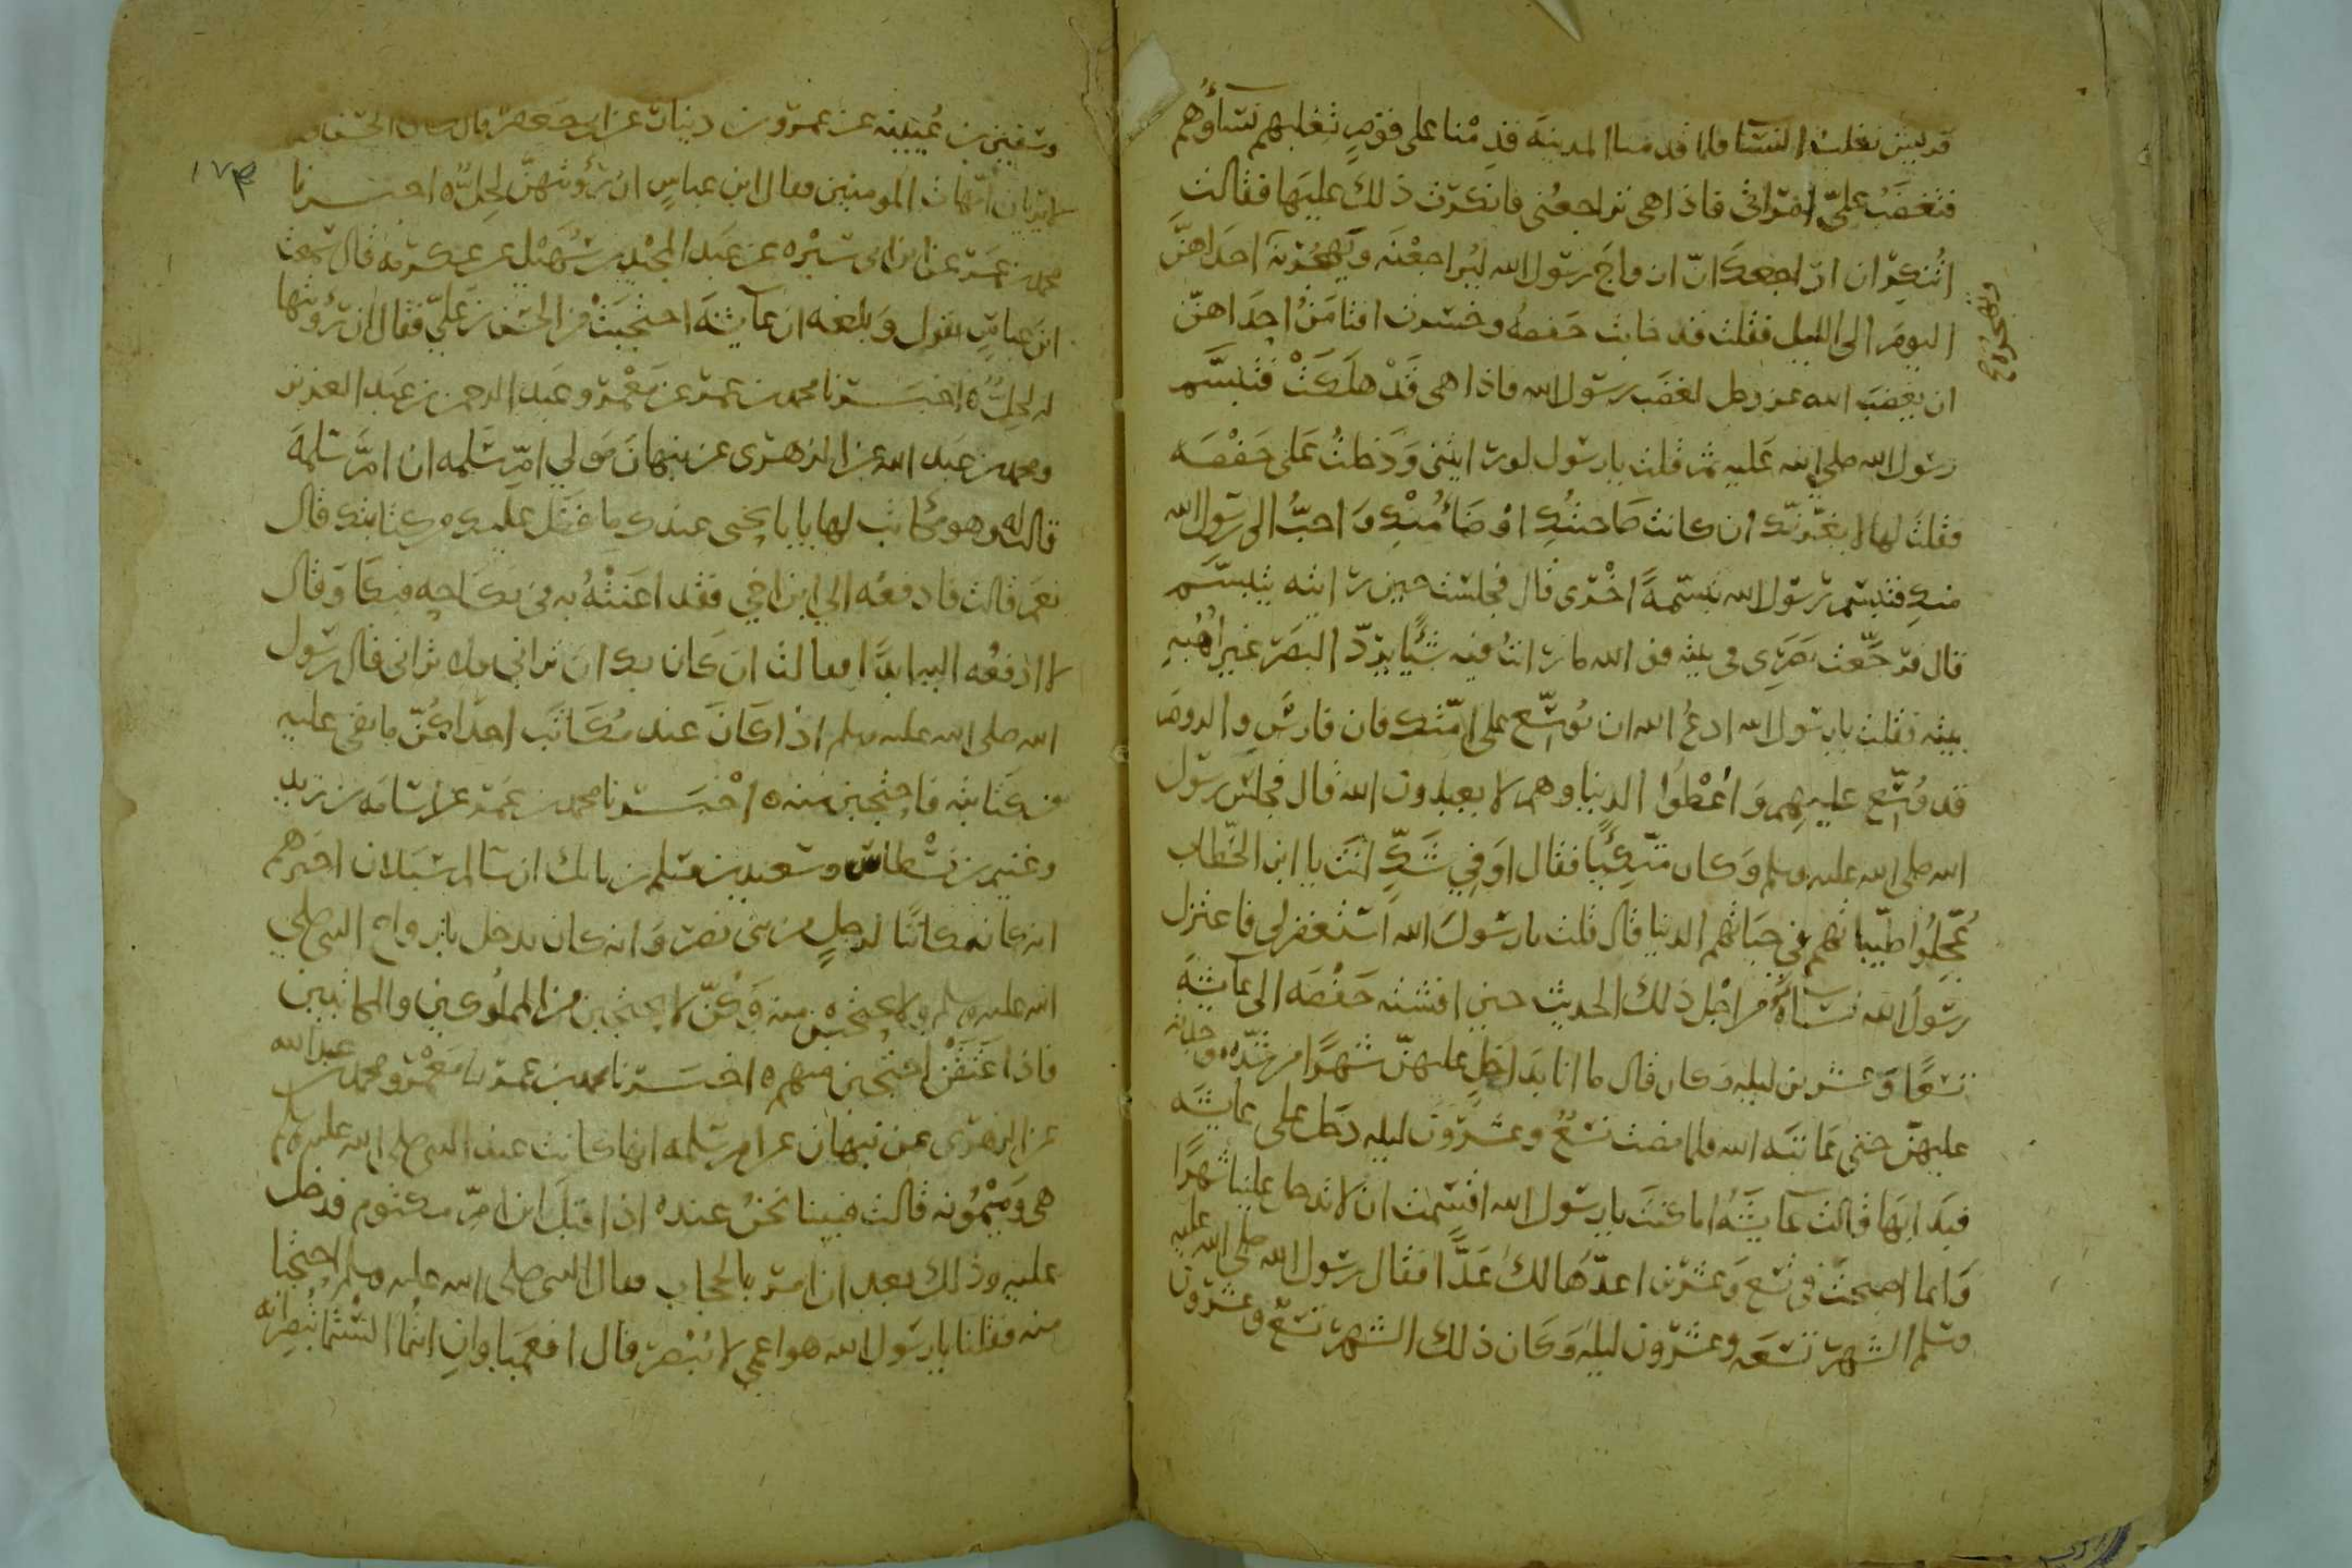 قريش نغلب النسا فلما قدمنا المدينة قدمنا على قوم تغلبهم نساؤهم
فتغضب علي امراتي فاذا هي تراجعني فانكرت ذلك عليها فقالت
اتنكر ان اراجعك ان ازواج رسول الله ليراجعنه وتهجرنه احداهن
وتهجره
اليوم الى الليل فقلت قد خابت حفصة وخسرت افتامن احداهن
ان يغضب الله عز وجل لغضب رسول الله فاذا هي قد هلكت فتبسم
رسول الله صلى الله عليه ثم قلت يا رسول الله لو رايتني ودخلت على حفصه
فقلت لها لا يغرنك ان كانت صاحبتك اوضا منك واحب الى رسول الله
منك فتبسم رسول الله تبسمة اخرى قال فجلست حين رايته يتبسم
قال فرجعت بصري في بيته فو الله ما رايت فيه شيئا يرد البصر غير اهبه
بيته فقلت يا رسول الله ادع الله ان يوسع على امتك فان فارس والروم
قد وسع عليهم واعطوا الدنيا وهم لا يعبدون الله قال فجلس رسول
الله صلى الله عليه وسلم وكان متكئا فقال اوفي شك انت يا ابن الخطاب
عجلوا طيباتهم في حياتهم الدنيا قال قلت يا رسول الله استغفر لي فاعتزل
رسول الله نساه من اجل ذلك الحديث حين افشته حفصه الى عايشة
تسعا وعشرين ليلة وكان قال ما انا بداخل عليهن شهرا من شده موجدته
عليهن حتى عاتبه الله فلما مضت تسع وعشرون ليله دخل على عايشه
فبدا بها قالت عايشه اما كنت يا رسول الله اقسمت ان لا تدخل علينا شهرا
وانما اصبحت في تسع وعشرين اعدها لك عدا فقال رسول الله صلى الله عليه
وسلم الشهر تسعه وعشرون ليله وكان ذلك الشهر تسع وعشرون
١٧٤
وسفين بن عيينه عن عمرو بن دينار عن ابي جعفر قال كان الحسن
لا يريان امهات المومنين فقال ابن عباس ان رؤيتهن لحل ه اخبرنا
محمد بن عمر عن ابن ابي سبره عن عبد المجيد بن سهيل عن عكرمه قال سمعت
ابن عباس يقول وبلغه ان عايشة احتجبت من الحسن بن علي فقال ان رؤيتها
له لحل ه اخبرنا محمد بن عمر عن معمر وعبد الرحمن بن عبد العزيز
ومحمد بن عبد الله عن الزهري عن نبهان مولى ام سلمه ان ام سلمة
قالت له وهو مكاتب لها يا با يحيى عندك ما فضل عليك من كتابتك قال
نعم قالت فادفعه الى ابن اخي فقد اعنته به في نكاحه فبكا وقال
لا ادفعه اليه ابدا فقالت ان كان بك ان تراني فلن تراني قال رسول
الله صلى الله عليه وسلم اذا كان عند مكاتب احداكن ما بقي عليه
من كتابته فاحتجبن منه ه اخبرنا محمد بن عمر عن اسامه بن زيد
وغنيم بن نسطاس وسعيد بن مسلم بن بابك ان سالم سبلان اخبرهم
انه كان مكاتبا لرجل من بني نصر وانه كان يدخل بازواج النبي صلى
الله عليه وسلم ولا يحتجبن منه وكن لا يحتجبن من المملوكين والمكاتبين
فاذا عتقن احتجبن منهم ه اخبرنا محمد بن عمر نا معمر ومحمد بن عبد الله
عن الزهري عن نبهان عن ام سلمه انها كانت عند النبي صلى الله عليه وسلم
هي وميمونه قالت فبينا نحن عنده اذ اقبل ابن ام مكتوم فدخل
عليه وذلك بعد ان امر بالحجاب فقال النبي صلى الله عليه وسلم احتجبا
منه فقلنا يا رسول الله هو اعمى لا يبصر قال افعميا وان انتما الستما تبصرانه